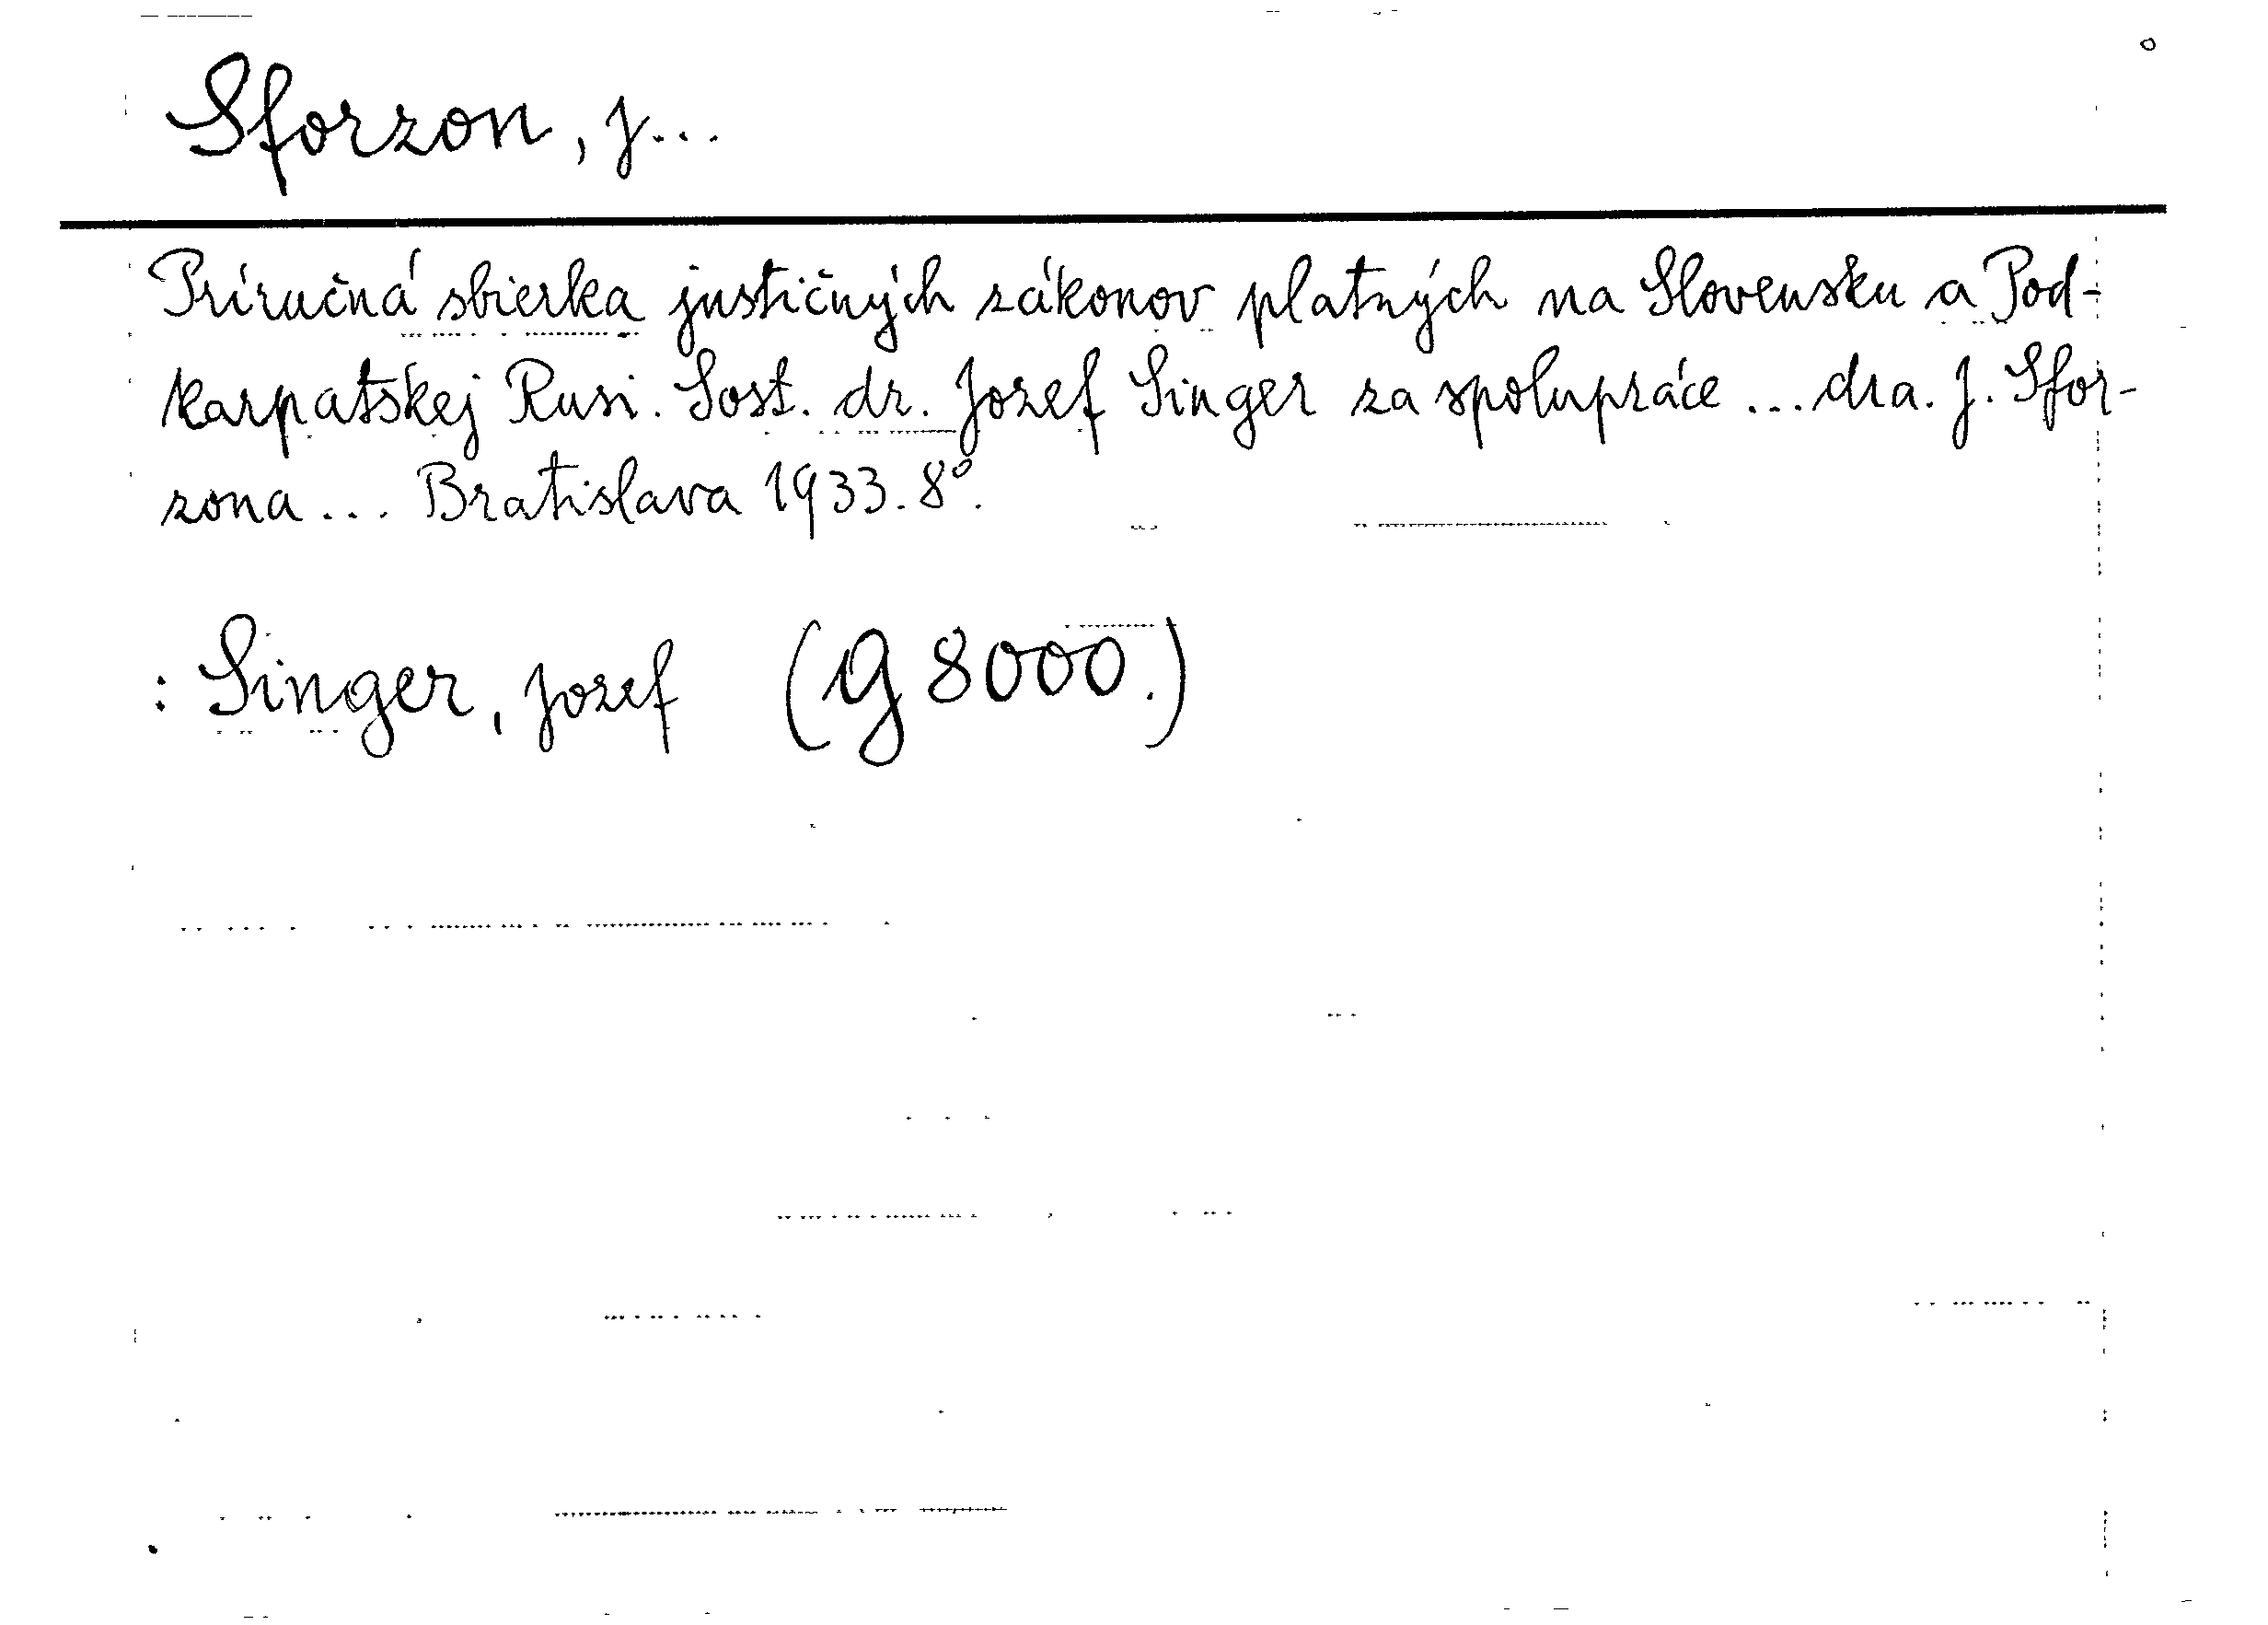 Sforzon, J...
Príručná sbierka justičných zákonov platných na Slovensku a Pod-
karpatskej Rusi. Sost. dr. Jozef Singer za spolupráce ... dra. J. Sfor-
zona ... Bratislava 1933. 8°.
: Singer, Jozef (G 8000.)